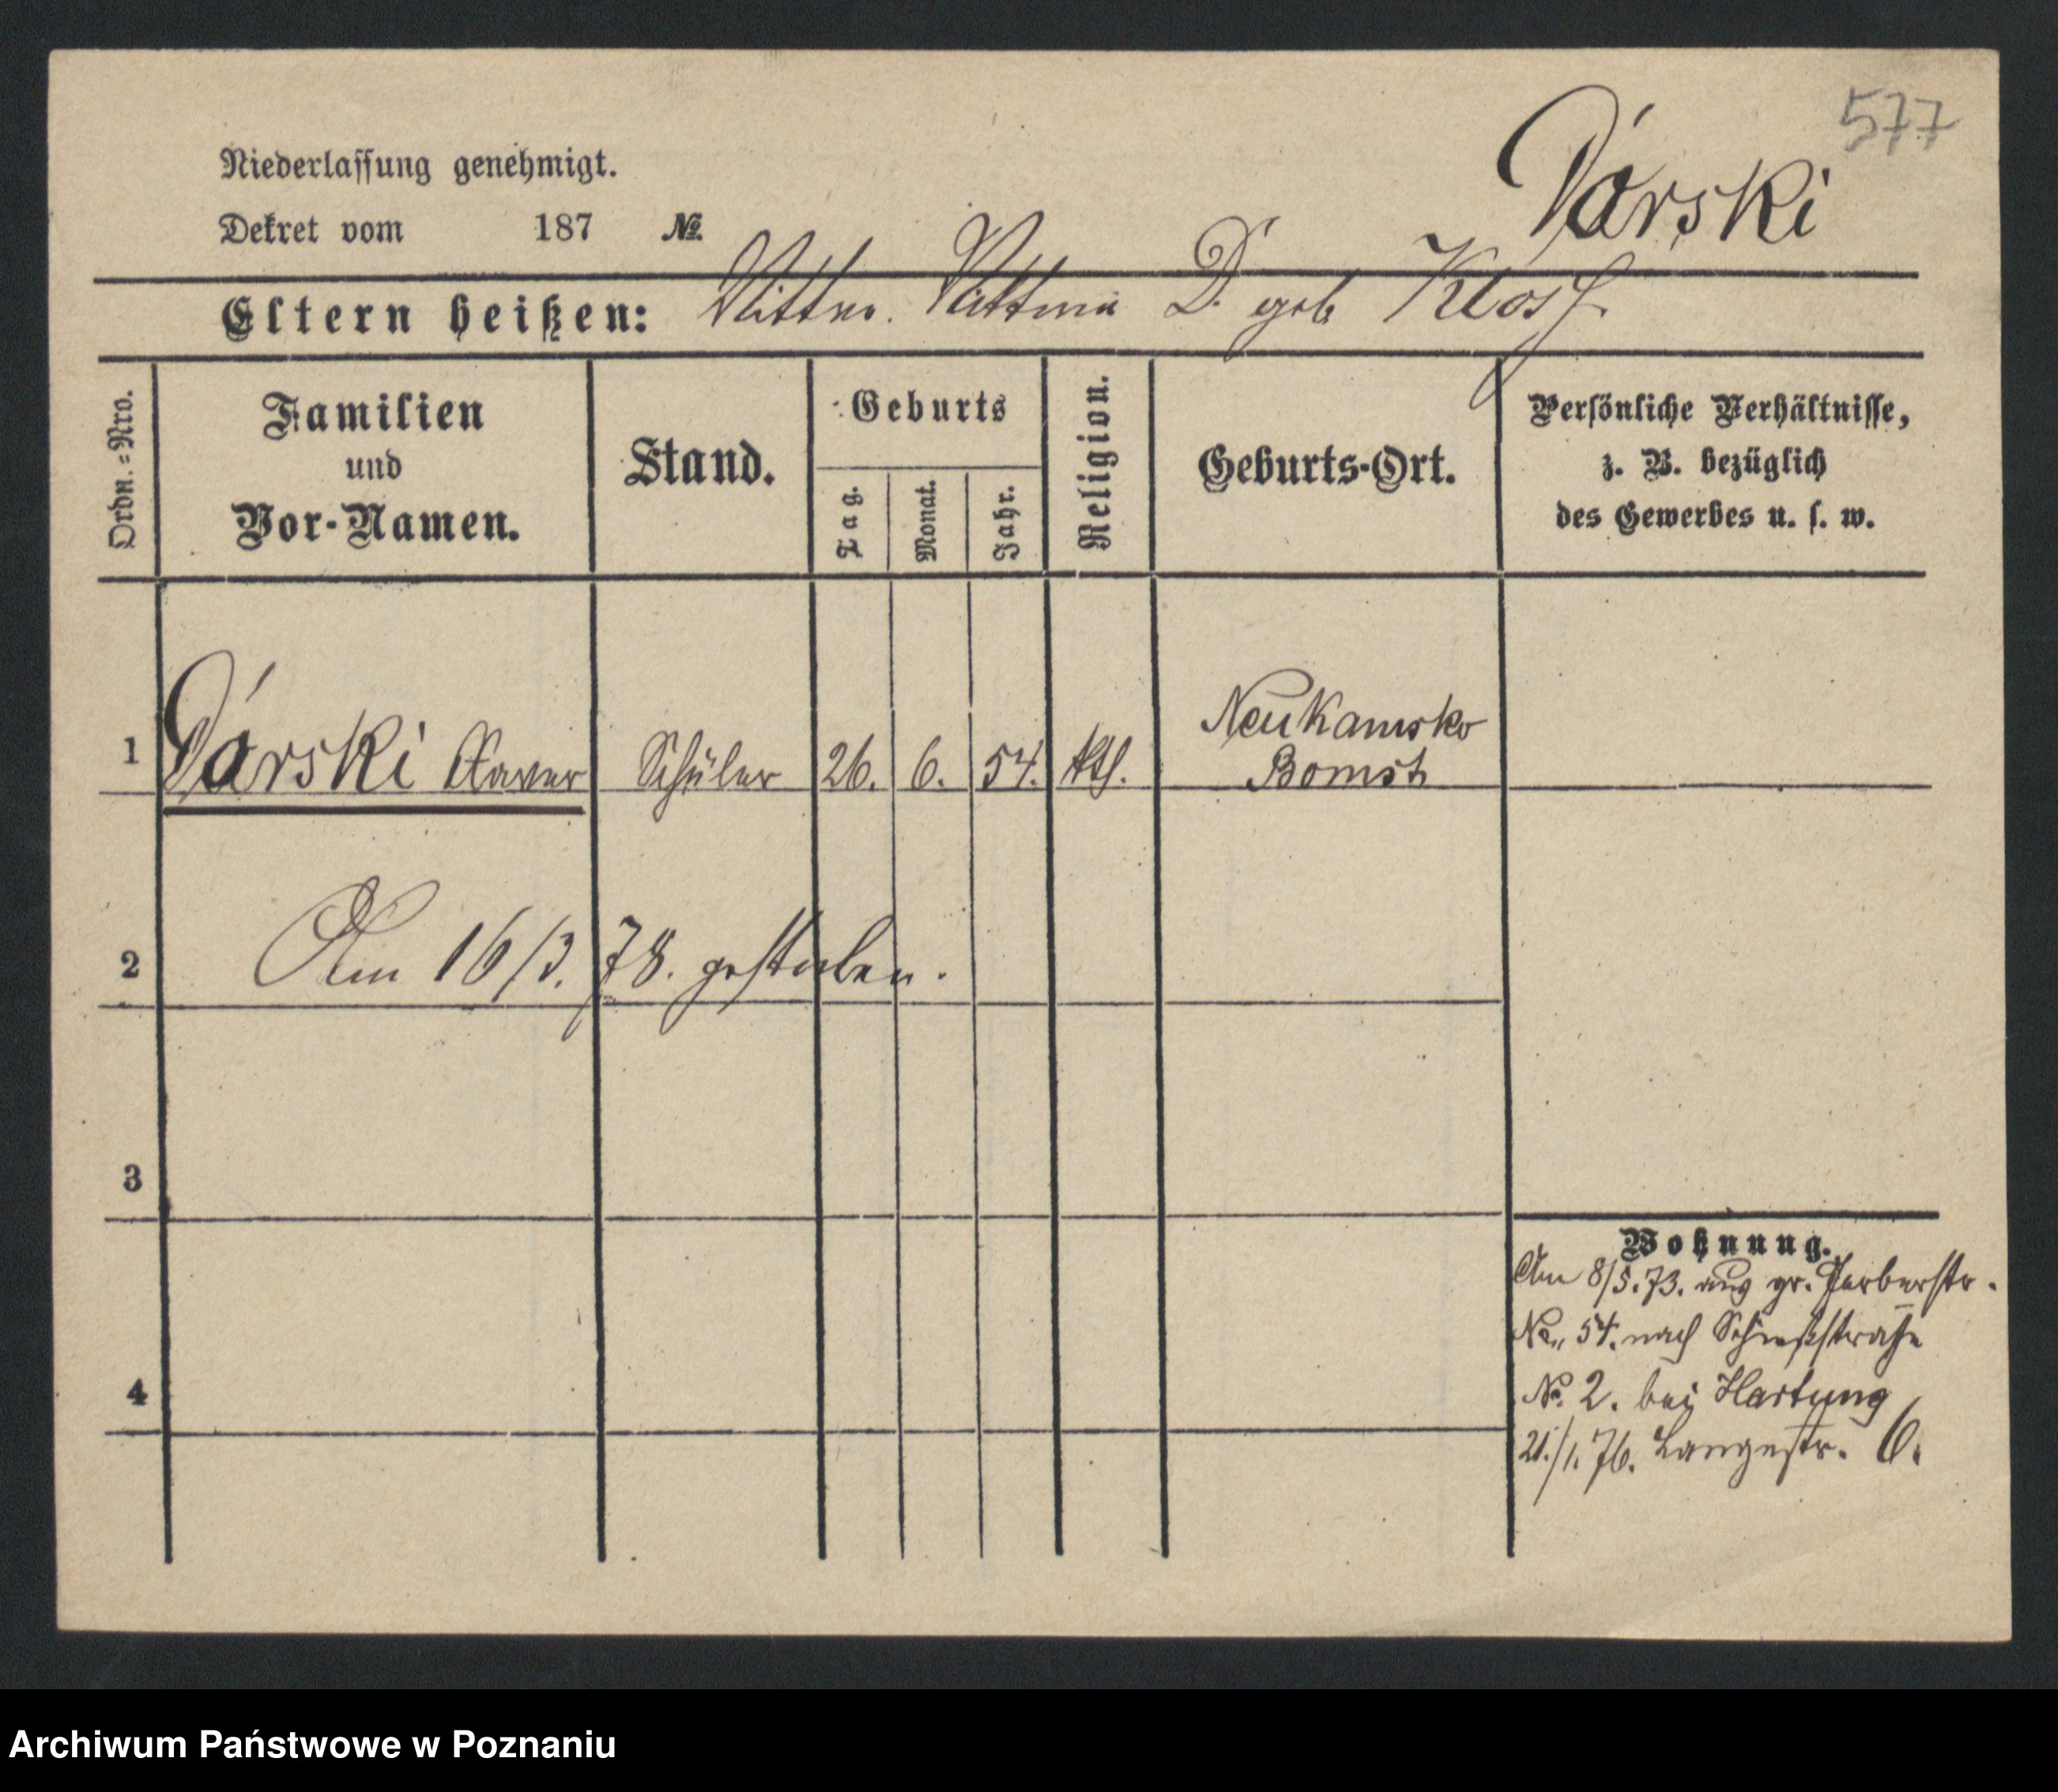 577
Dárski
Niederlassung genehmigt.
Dekret vom 187 No.
Eltern heißen: D. geb. Klos
Ordn.=Nro.
Familien
und
Vor-Namen.
Stand.
Geburts
Tag.
Monat.
Jahr.
Religion.
Geburts-Ort.
Persönliche Verhältnisse,
z. B. bezüglich
des Gewerbes u. s. w.
1 Dárski Xaver Schüler 26. 6. 54. kth. Neu Kamsko
Bomst
2 Am 16/3. 78. gestorben.
3
4
Wohnung.
Am 8/5. 73. aus gr. Gerberstr.
No. 54. nach Schießstraße
No. 2. bei Hartung
21./1. 76. Langestr. 6.
Archiwum Państwowe w Poznaniu